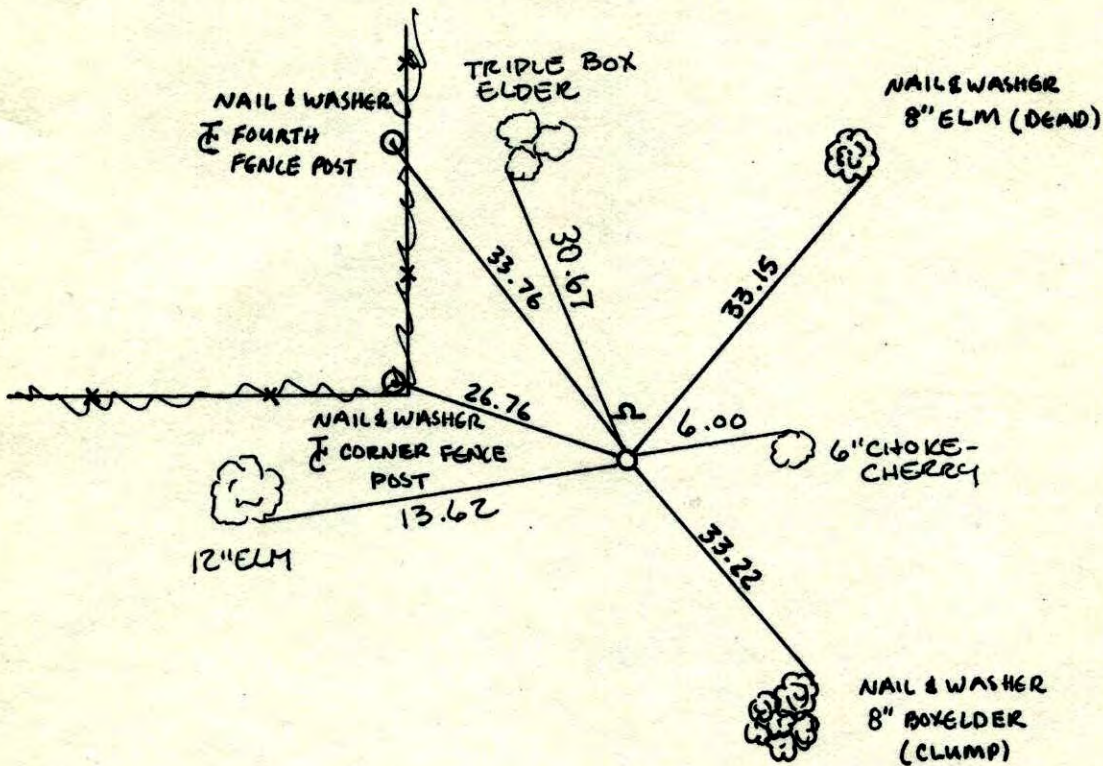 NAIL & WASHER
℄ FOURTH
FENCE POST
TRIPLE BOX
ELDER
NAIL & WASHER
8" ELM (DEAD)
33.76
30.67
33.15
26.76
Ω
6.00
NAIL & WASHER
℄ CORNER FENCE
POST
6" CHOKE-
CHERRY
13.62
12" ELM
33.22
NAIL & WASHER
8" BOXELDER
(CLUMP)